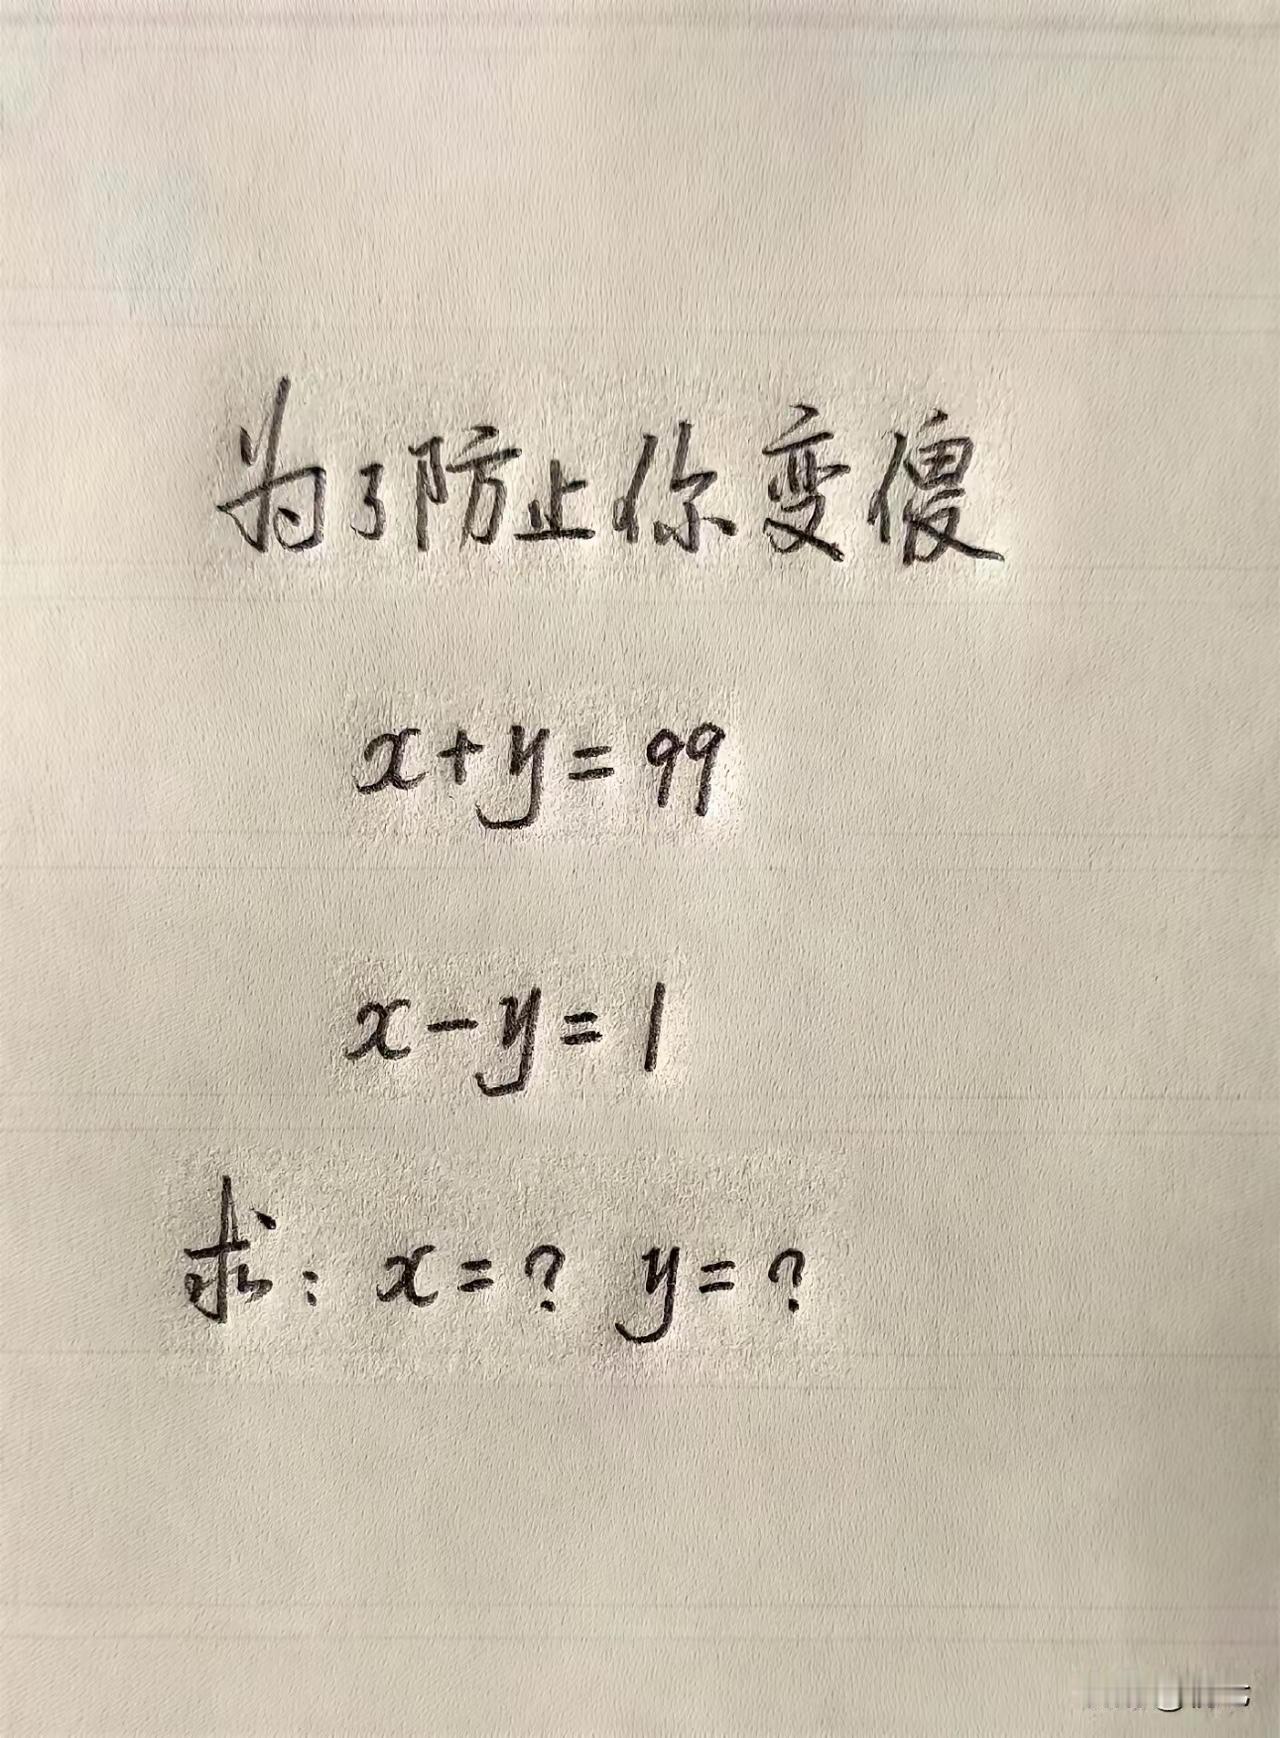 为了防止你变傻
x+y=99
x-y=1
求: x=? y=?